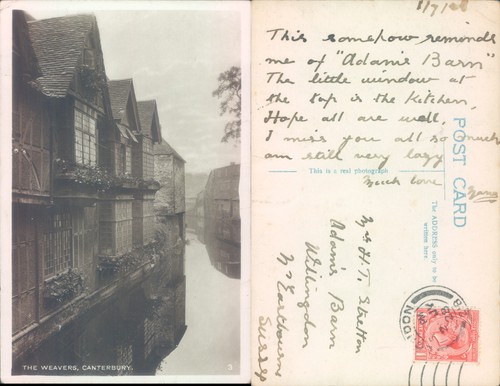 THE WEAVERS, CANTERBURY.
3
This somehow reminds
me of "Adam's Barn"
The little window at
the top is the Kitchen,
Hope all are well,
I miss you all so much
am still very lazy
Much love
This is a real photograph
POST CARD
The ADDRESS only to be
written here.
Mrs H. T. Stretton
Adam's Barn
Willingdon
Nr Eastbourne
Sussex
LONDON